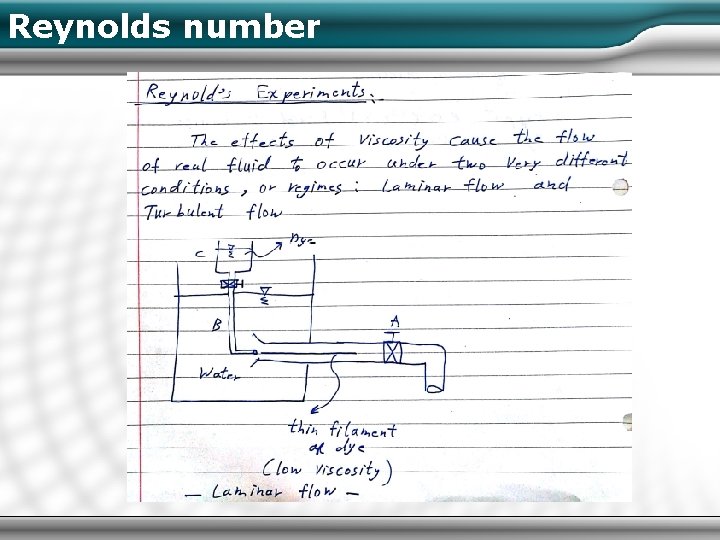 Reynolds number
Reynold's Experiments:-
The effects of Viscosity cause the flow
of real fluid to occur under two very different
conditions, or regimes: Laminar flow and
Turbulent flow
C
Dye
B
A
Water
thin filament
of dye
(low viscosity)
- Laminar flow -